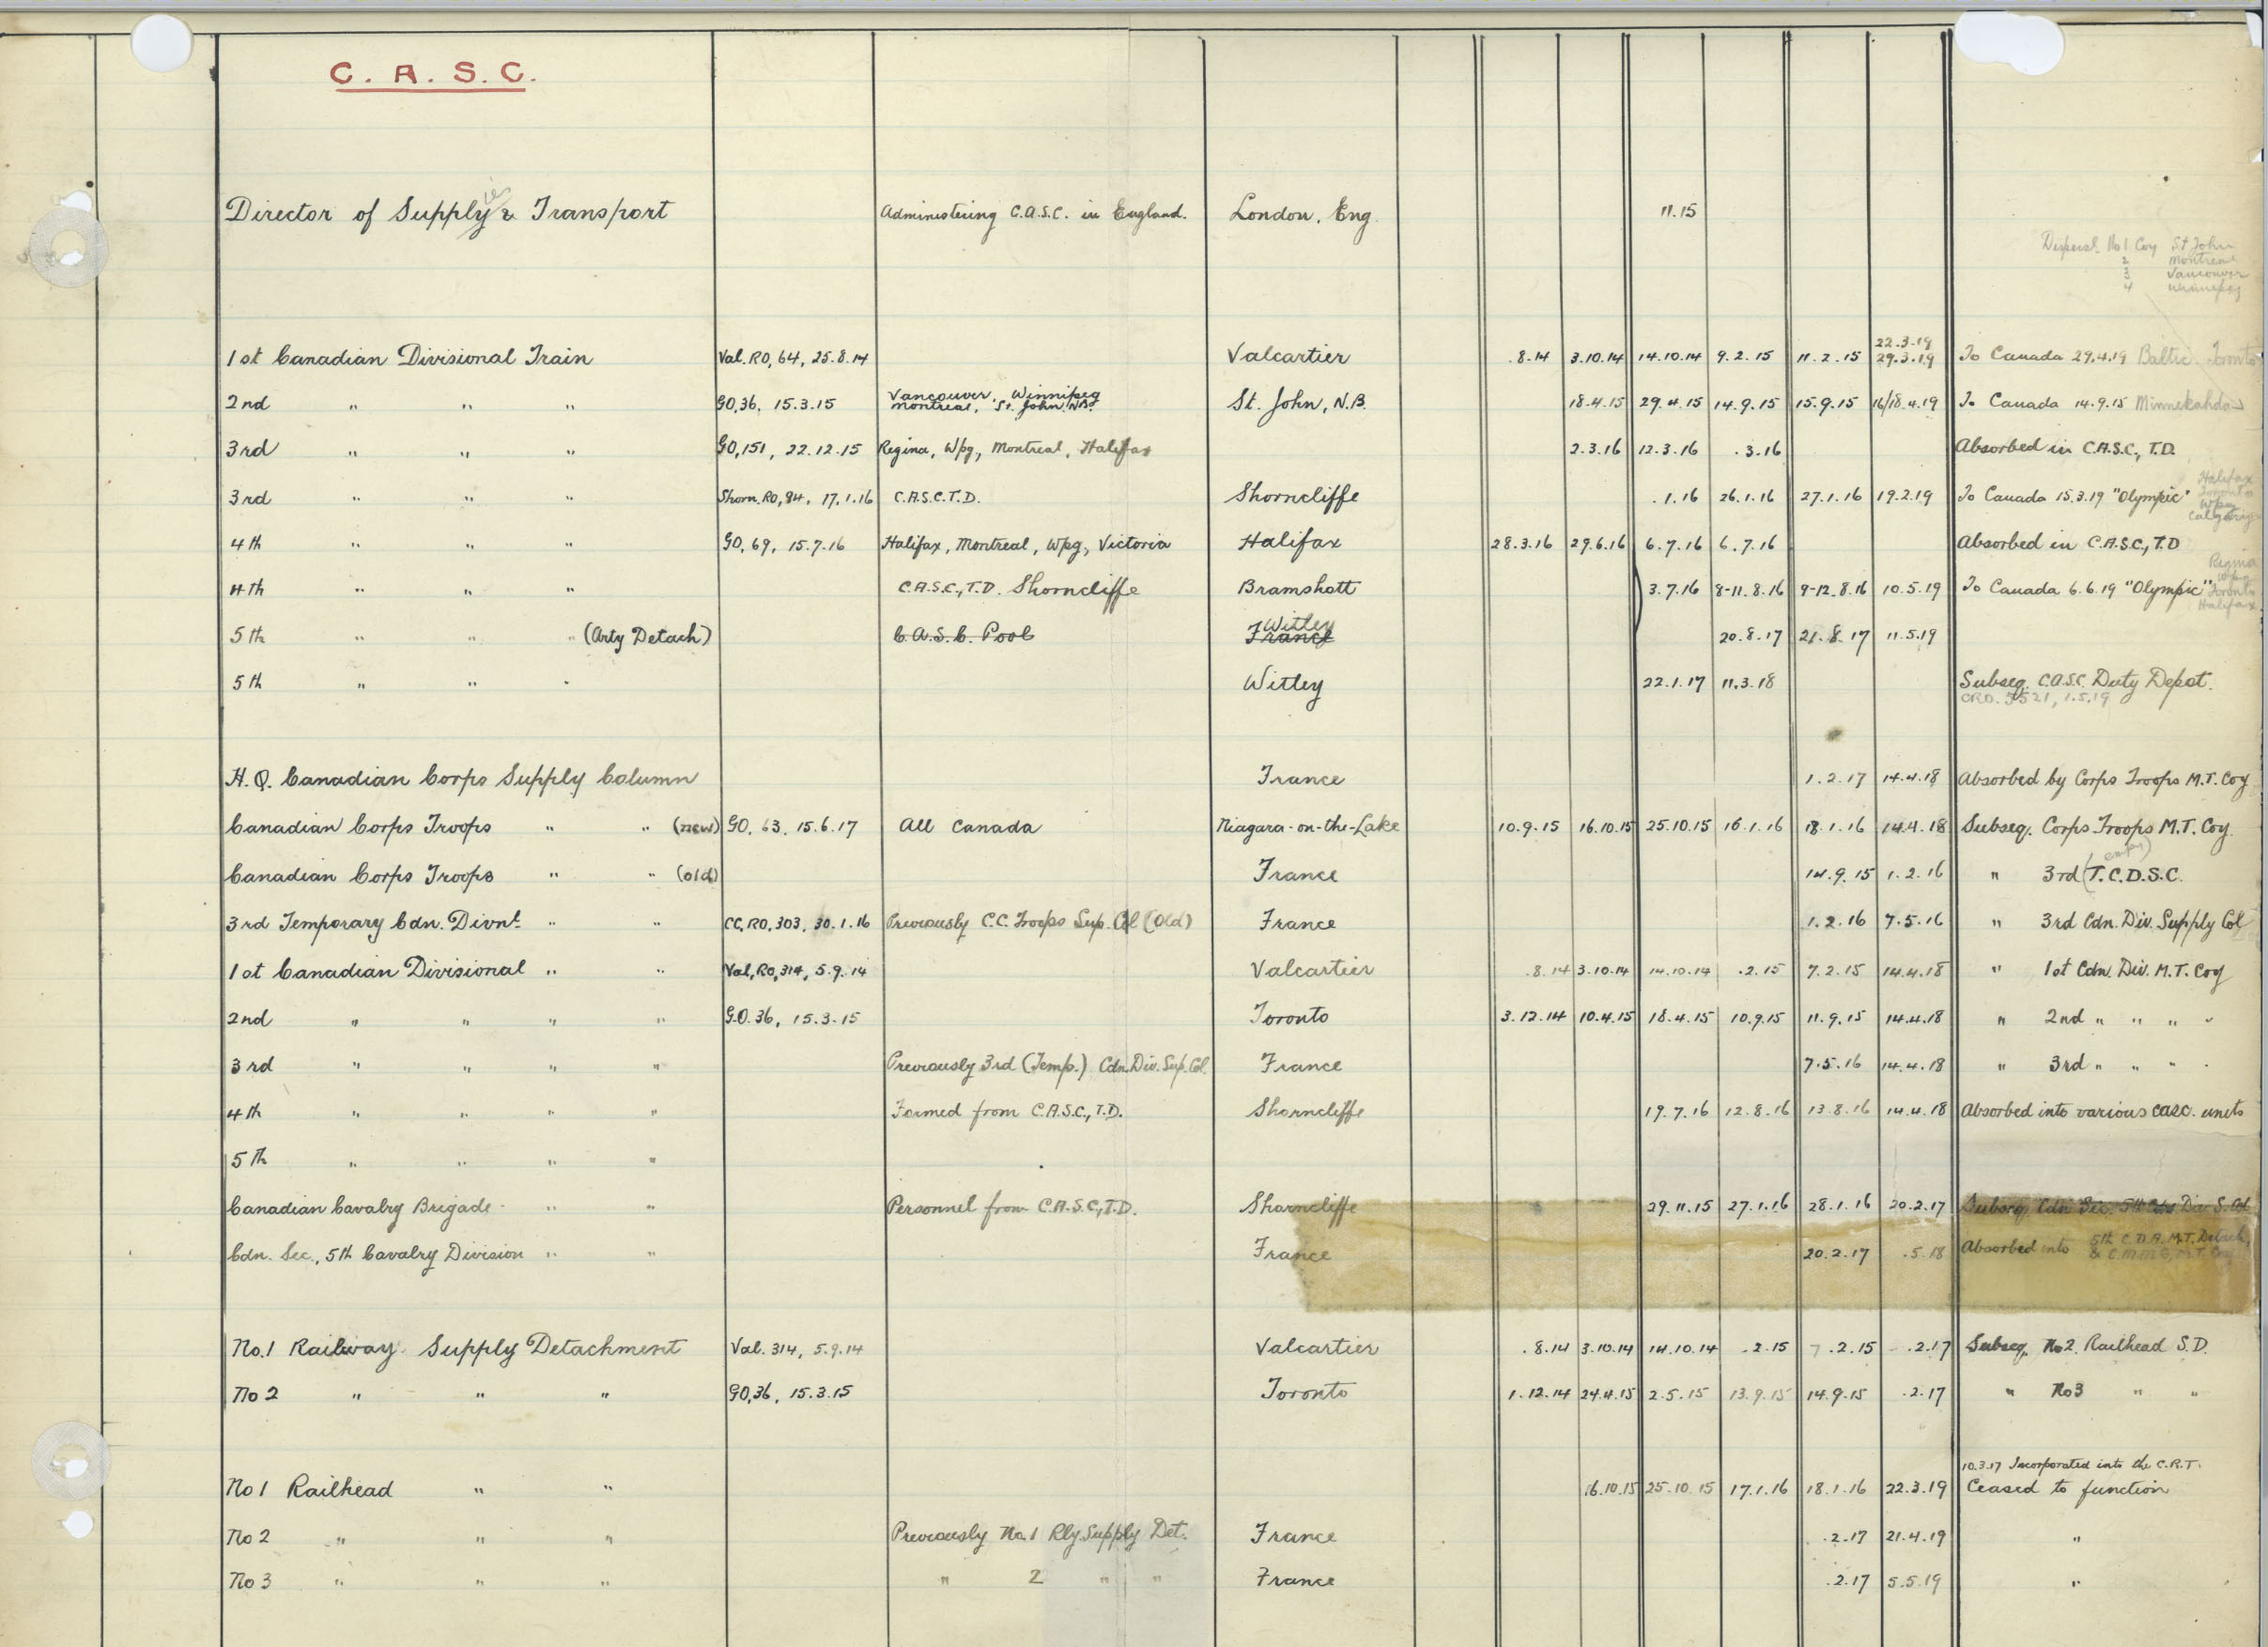 C. A. S. C.
Director of Supply & Transport Administering C.A.S.C. in England. London, Eng. 11.15
Dispersal No 1 Coy St John
2 Montreal
3 Vancouver
4 Winnipeg
1st Canadian Divisional Train Val. RO, 64, 25.8.14 Valcartier .8.14 3.10.14 14.10.14 9.2.15 11.2.15 22.3.19 29.3.19 To Canada 29.4.19 Baltic Toronto
2nd " " " GO,36, 15.3.15 Vancouver, Winnipeg Montreal, St. John, N.B. St. John, N.B. 18.4.15 29.4.15 14.9.15 15.9.15 16/18.4.19 To Canada 14.9.15 Minnekahda
3rd " " " GO,151, 22.12.15 Regina, Wpg, Montreal, Halifax 2.3.16 12.3.16 .3.16 Absorbed in C.A.S.C., T.D.
3rd " " " Shorn. RO, 84, 17.1.16 C.A.S.C.T.D. Shorncliffe .1.16 26.1.16 27.1.16 19.2.19 To Canada 15.3.19 "Olympic" Halifax Toronto Wpg Calgary
4th " " " GO, 69, 15.7.16 Halifax, Montreal, Wpg, Victoria Halifax 28.3.16 29.6.16 6.7.16 6.7.16 Absorbed in C.A.S.C., T.D
4th " " " C.A.S.C., T.D. Shorncliffe Bramshott 3.7.16 8-11.8.16 9-12.8.16 10.5.19 To Canada 6.6.19 "Olympic" Regina Wpg Toronto Halifax
5th " " " (Arty Detach) C.A.S.C. Pool France Witley 20.8.17 21.8.17 11.5.19
5th " " " Witley 22.1.17 11.3.18 Subseq. C.A.S.C. Duty Depot.
CRO. 1.5.19
H.Q. Canadian Corps Supply Column France 1.2.17 14.4.18 Absorbed by Corps Troops M.T. Coy
Canadian Corps Troops " " (new) GO, 63, 15.6.17 All Canada Niagara-on-the-Lake 10.9.15 16.10.15 25.10.15 16.1.16 18.1.16 14.4.18 Subseq. Corps Troops M.T. Coy.
Canadian Corps Troops " " (old) France 14.9.15 1.2.16 " 3rd (Tempy) C.D.S.C.
3rd Temporary Cdn. Divnl " " CC, RO, 303, 30.1.16 Previously C.C. Troops Sup. Col (Old) France 1.2.16 7.5.16 " 3rd Cdn. Div. Supply Col
1st Canadian Divisional " " Val, RO, 314, 5.9.14 Valcartier .8.14 3.10.14 14.10.14 .2.15 7.2.15 14.4.18 " 1st Cdn. Div. M.T. Coy
2nd " " " " G.O. 36, 15.3.15 Toronto 3.12.14 10.4.15 18.4.15 10.9.15 11.9.15 14.4.18 " 2nd " " " "
3rd " " " " Previously 3rd (Temp.) Cdn. Div. Sup. Col. France 7.5.16 14.4.18 " 3rd " " " "
4th " " " " Formed from C.A.S.C., T.D. Shorncliffe 19.7.16 12.8.16 13.8.16 14.4.18 Absorbed into various CASC. units
5th " " " "
Canadian Cavalry Brigade " " Personnel from C.A.S.C., T.D. Shorncliffe 29.11.15 27.1.16 28.1.16 20.2.17 Subseq. Cdn Sec. 5th Cav Div S. Col
Cdn. Sec., 5th Cavalry Division " " France 20.2.17 .5.18 Absorbed into 5th C.D.A.M.T. Detach, & C.M.M.G. M.T. Coy
No.1 Railway Supply Detachment Val. 314, 5.9.14 Valcartier .8.14 3.10.14 14.10.14 .2.15 7.2.15 .2.17 Subseq. No2. Railhead S.D.
No 2 " " " GO,36, 15.3.15 Toronto 1.12.14 24.4.15 2.5.15 13.9.15 14.9.15 .2.17 " No3 " "
10.3.17 Incorporated into the C.R.T.
No 1 Railhead " " 16.10.15 25.10.15 17.1.16 18.1.16 22.3.19 Ceased to function
No 2 " " " Previously No.1 Rly. Supply Det. France .2.17 21.4.19 "
No 3 " " " " 2 " " France .2.17 5.5.19 "